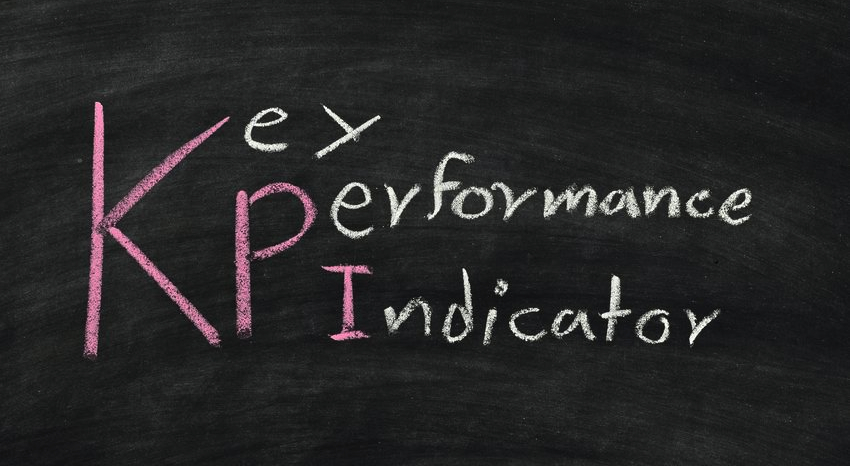 Key
Performance
Indicator